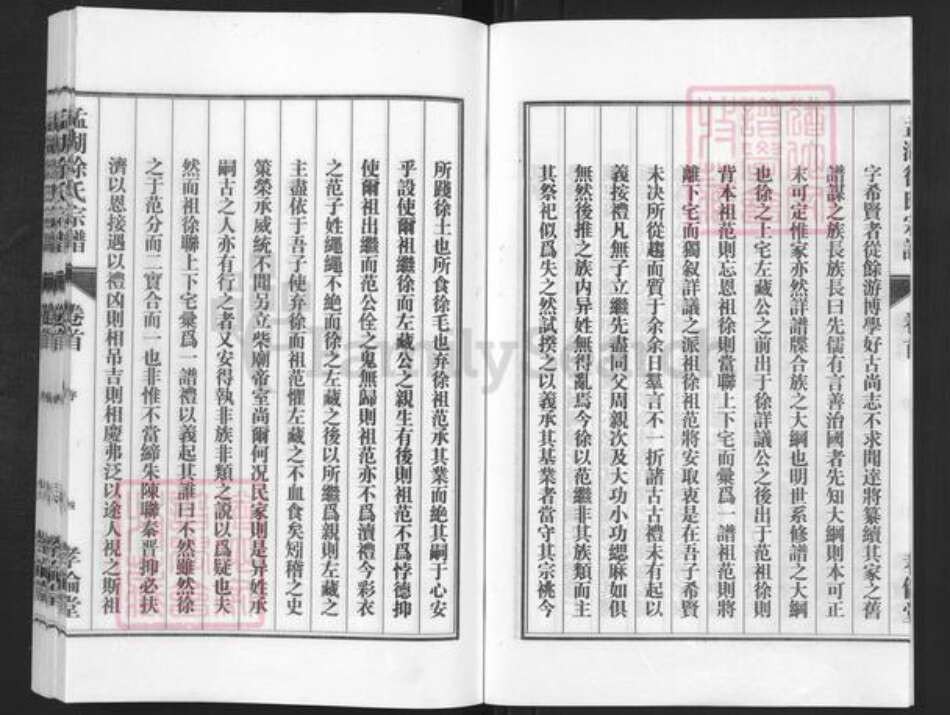 字希賢者從餘游博學好古尚志不求聞達將纂續其家之舊
譜謀之族長族長曰先儒有言善治國者先知大綱則本可正
末可定惟家亦然詳譜牒合族之大綱也明世系修譜之大綱
也徐之上宅左藏公之前出于徐詳議公之後出于范祖徐則
背本祖范則忘恩祖徐則當聯上下宅而彙爲一譜祖范則將
離下宅而獨叙詳議之派祖徐祖范將安取衷是在吾子希賢
未决所從趨而質于余余曰羣言不一折諸古古禮未有起以
義按禮凡無子立繼先盡同父周親次及大功小功緦麻如俱
無然後推之族内异姓無得亂焉今徐以范繼非其族類而主
其祭祀似爲失之然試揆之以義承其基業者當守其宗祧今
所踐徐土也所食徐毛也弃徐祖范承其業而絶其嗣于心安
乎設使爾祖繼徐而左藏公之親生有後則祖范不爲悖德抑
使爾祖出繼而范公佺之鬼無歸則祖范亦不爲瀆禮今彩衣
之范子姓繩繩不絶而徐之左藏之後以所繼爲親則左藏之
主盡依于吾子使弃徐而祖范懼左藏之不血食矣矧稽之史
策榮承威統不聞另立柴廟帝室尚爾何况民家則是异姓承
嗣古之人亦有行之者又安得執非族非類之說以爲疑也夫
然而祖徐聯上下宅彙爲一譜禮以義起其誰曰不然雖然徐
之于范分而二實合而一也非惟不當締朱陳聯秦晋抑必扶
濟以恩接遇以禮凶則相吊吉則相慶弗泛以途人視之斯祖
孟湖徐氏宗譜
卷首
序
四
孝倫堂
FamilySearch